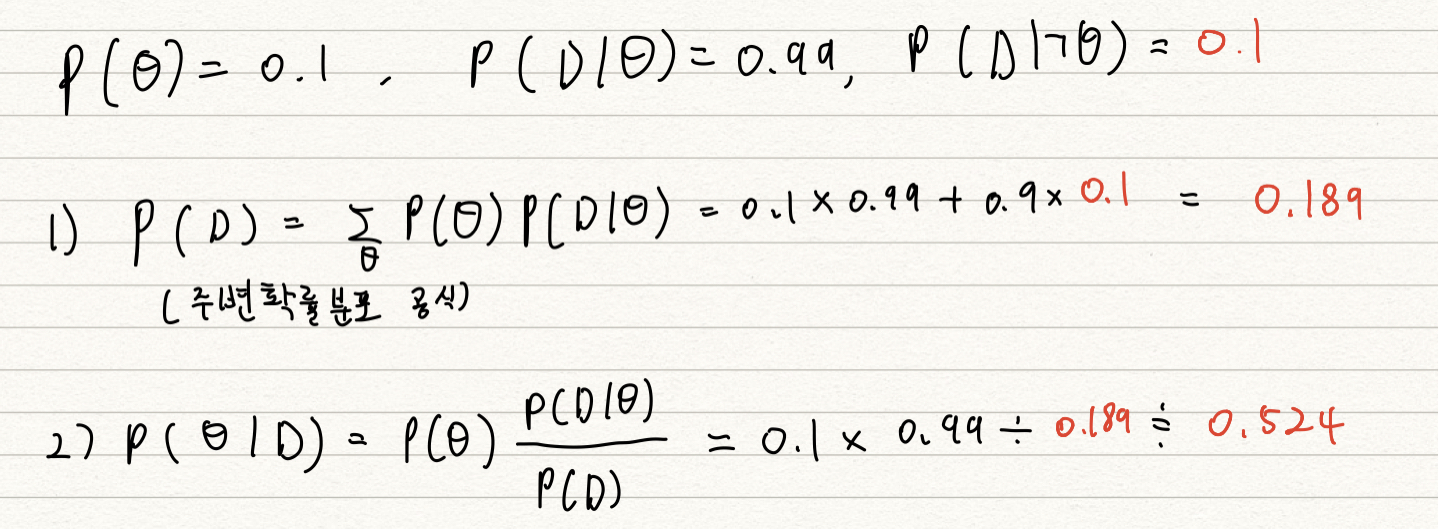 P(θ) = 0.1 , P(D|θ) = 0.99, P(D|¬θ) = 0.1
1) P(D) = Σ_θ P(θ)P(D|θ) = 0.1 × 0.99 + 0.9 × 0.1 = 0.189
(주변확률분포 공식)
2) P(θ|D) = P(θ) P(D|θ)/P(D) = 0.1 × 0.99 ÷ 0.189 ≒ 0.524